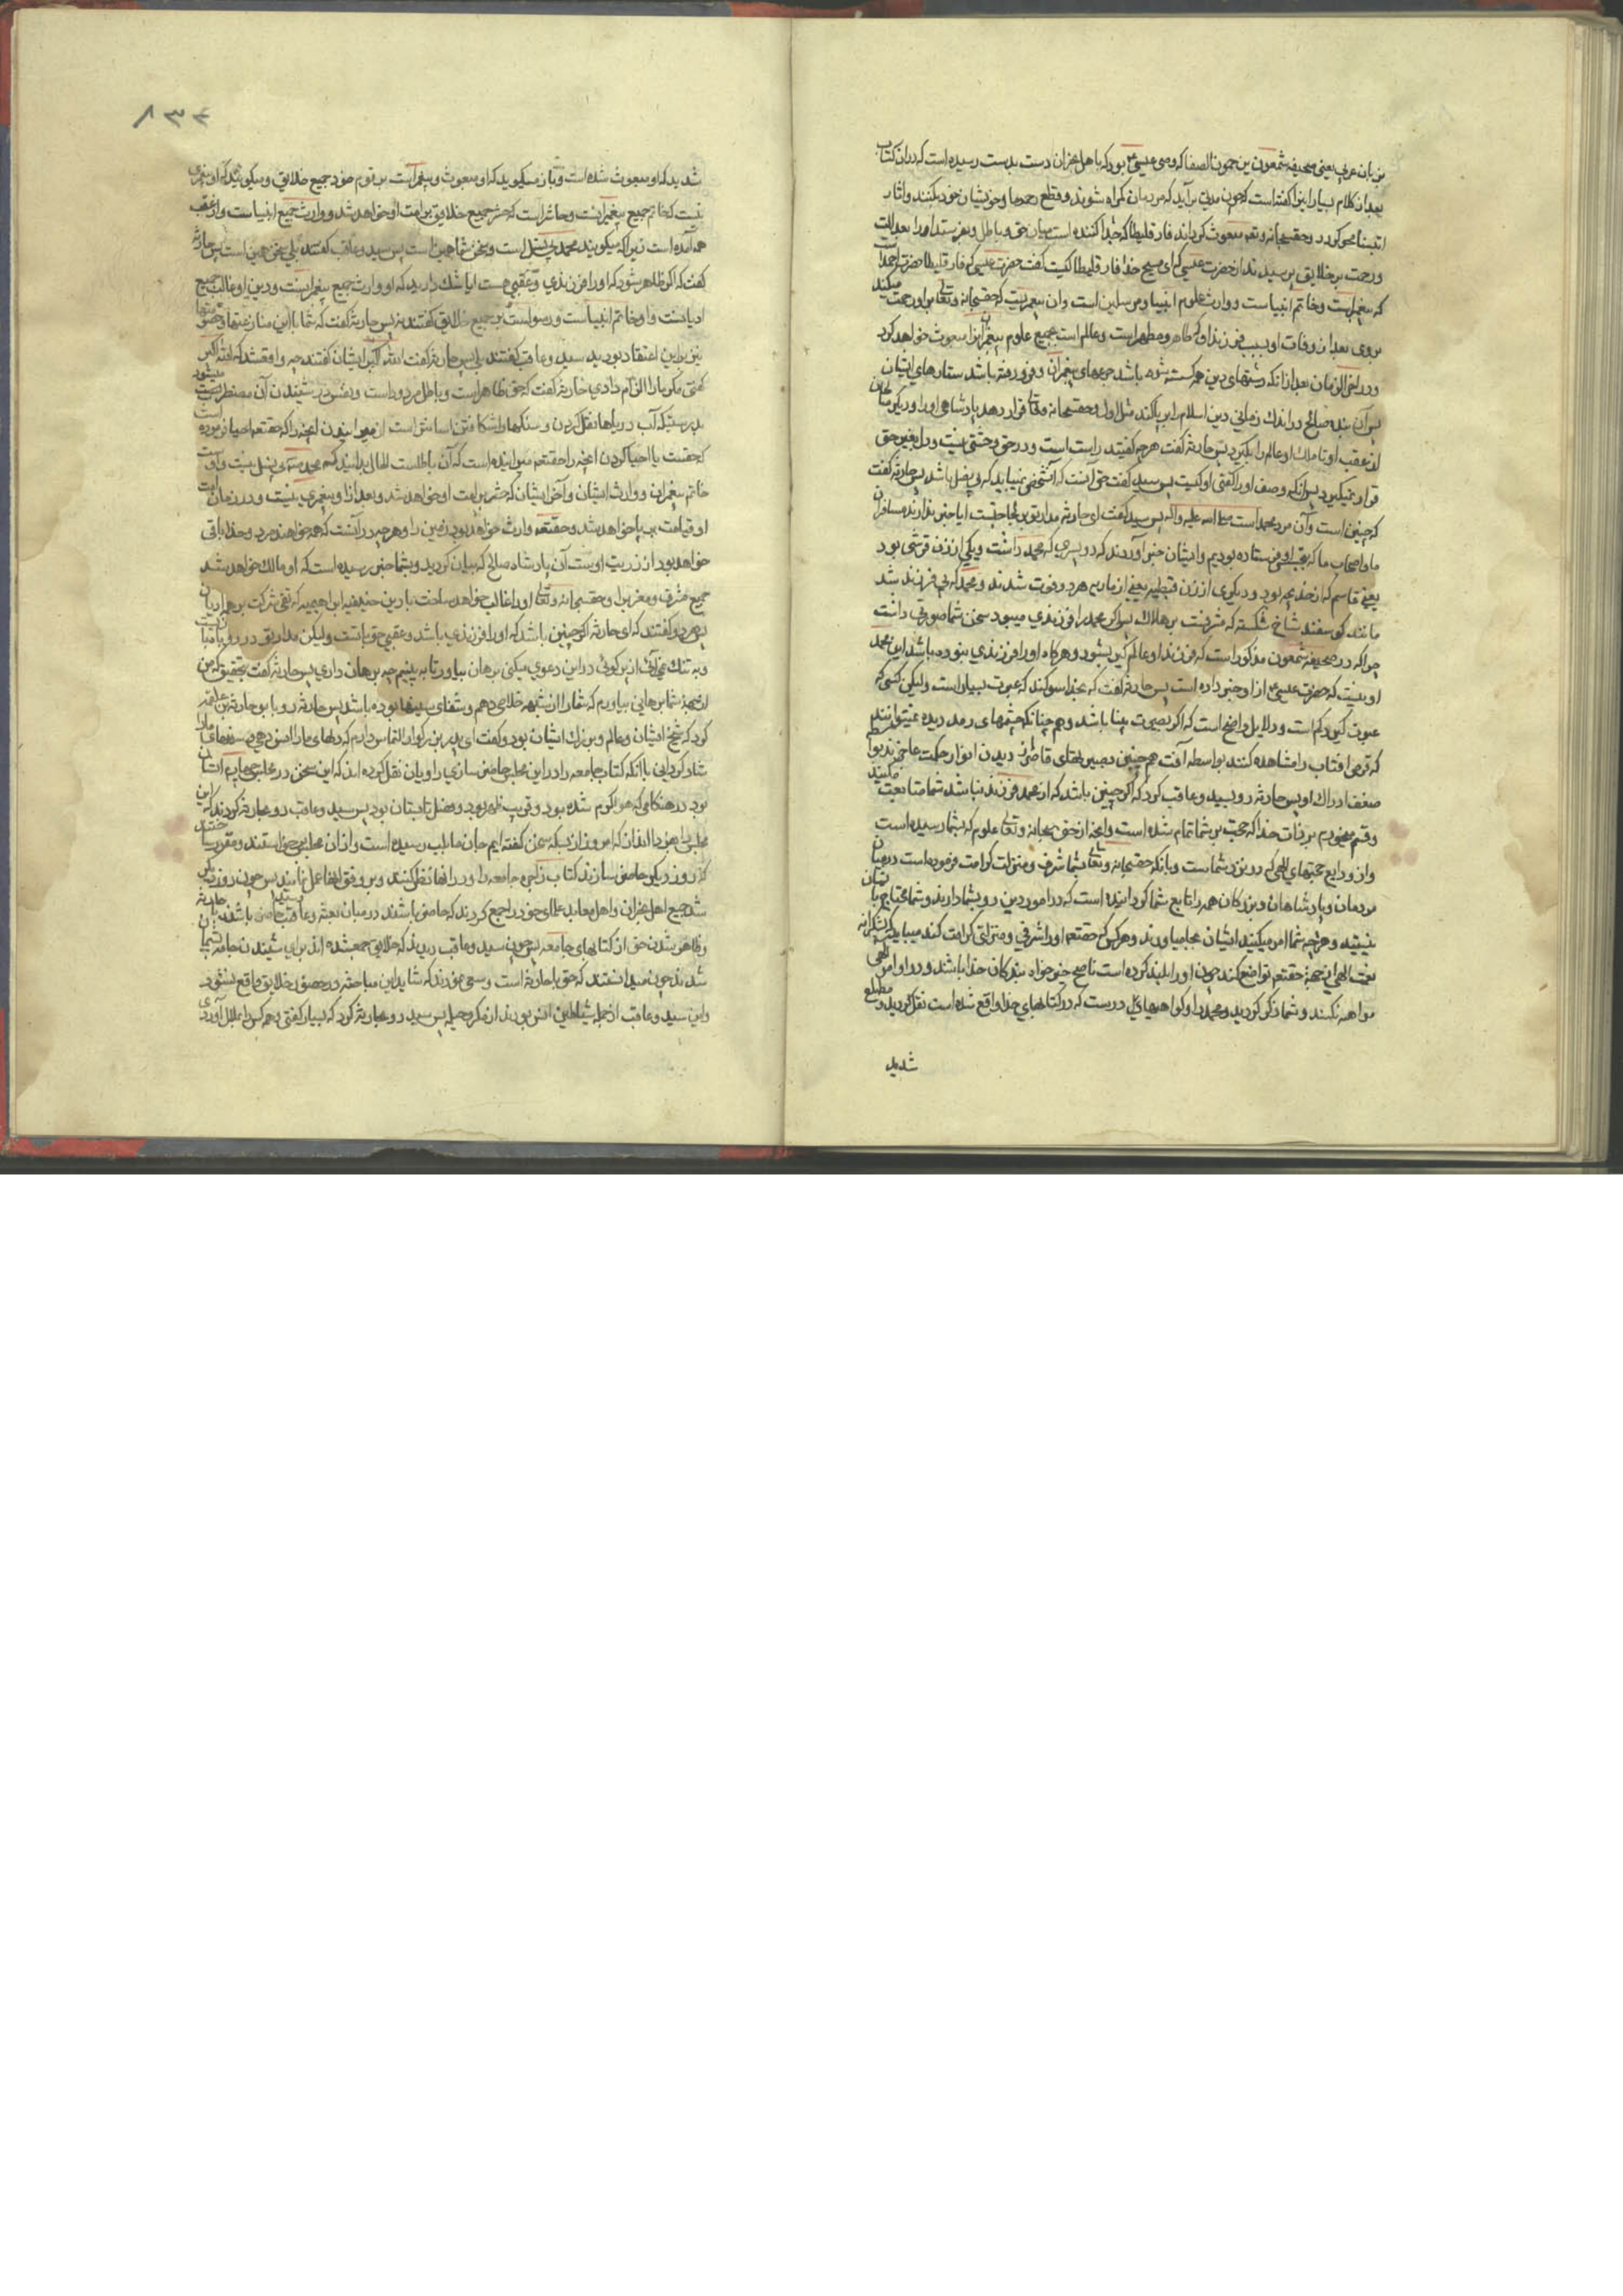 بزبان عربی یعنی صحیفه شمعون بن حمون الصفا که وصی عیسی ع بود که باهل نجران دست بدست رسیده است که در ان کتاب
بعد از کلام بسیار این گفته است که چون مدتی برآید که مردمان گمراه شوند و قطع رحمها و خویشان خود بکنند و اثار
انبیا محو گردد و حقسبحانه وتعالی مبعوث گرداند فارقلیطا که جدا کننده است میان حق و باطل
و رحمت بر خلایق پرسیدند از حضرت عیسی که ای مسیح خدا فارقلیطا کیست گفت حضرت عیسی که فارقلیطا حضرت احمد است
که پیغمبر است و خاتم انبیاست و وارث علوم انبیا و مرسلین است و ان پیغمبریست که حقسبحانه وتعالی بر او رحمت میکند
بروی بعد از وفات او بسبب فرزند او که طاهر و مطهر است و عالم است بجمیع علوم پیغمبران مبعوث خواهد کرد
در اخر الزمان بعد از انکه رشتهای دین همه گسسته شده باشد و فرو رفته باشد ستارهای ایشان
پس آن بنده صالح در اندک زمانی دین اسلام را برپا کند مثل اول و حقسبحانه وتعالی قرار دهد پادشاهی او را و دیگر صالحان
از عقب او تا ملک او عالم را بگیرد پس حارثه گفت هرچه گفتید راست است و در حق وحشتی نیست و دل بغیر حق
قرار نمیگیرد پس انکه وصف او را گفتی او کیست پس سید گفت حق آنست که آن شخص نمیباید که بی نسل باشد پس حارثه گفت
که چنین است و آن مرد محمد است صلی الله علیه واله پس سید گفت ای حارثه ایا خبر ندارند مسافران
ما و اصحاب ما که فرستاده بودیم و ایشان خبر آوردند که دو پسری که محمد داشت و یکی از زن قرشی بود
یعنی قاسم که از خدیجه بود و دیگری از زن قبطیه یعنی از ماریه هر دو فوت شدند و محمد که بی فرزند شد
مانند گوسفند شاخ شکسته که مشرفست بر هلاک پس اگر محمد را فرزندی میبود سخن شما صورتی داشت
چرا که در صحیفه شمعون مذکور است که فرزند او عالم گیر بشود و هرگاه او را فرزندی نبوده باشد این محمد
او نیست که حضرت عیسی از او خبر داده است پس حارثه گفت که بخدا سوگند که عبرت بسیار است ولیکن کسی که
عبرت گیرد کم است و دلایل واضح است که اگر بصیرت بینا باشد و همچنانکه چشمهای رمد دیده نمیتوانند
که قرص افتاب را مشاهده کنند بواسطه آفت همچنین بصیرتهای قاصر از دیدن انوار حکمت عاجزند بواسطه
ضعف ادراک او پس حارثه رو بسید و عاقب کرد که اگر چنین باشد که از محمد فرزند نباشد شما متابعت میکنید
و قسم میخورم بر ذات خدا که حجت بر شما تمام شده است و انچه از حق سبحانه وتعالی علوم که بشما رسیده است
و از ودایع حجتهای الهی که در نزد شماست و بانکه حقسبحانه وتعالی بشما شرف و منزلت کرامت فرموده است در میان
مردمان و پادشاهان و بزرگان همه را تابع شما گردانیده است که در امور دین رو بشما دارند و شما محتاج بایشان
نیستید و هرچه شما امر میکنید ایشان بجا میاورند و هر کس که حقتعالی او را شرفی و منزلتی کرامت کند میباید که بشکرانه
نعمت الهی از جهة حقتعالی تواضع کند چون او را بلند کرده است ناصح خیرخواه بندگان خدا باشد و در اوامر الهی
مداهنه نکنند و شما ذکر کردید محمد را و گواهیهای درست که در کتابهای خدا واقع شده است نقل کردید و مطلع
شدید
۸۳۴
شدید که او مبعوث شده است و باز میگویید که او مبعوث و پیغمبر است بر قوم خود نه جمیع خلایق و میگویید که او پیغمبری
نیست که خاتم جمیع پیغمبرانست و حاشر است که حشر جمیع خلایق بر امت او خواهد شد و وارث جمیع انبیاست و از عقب
همه آمده است زیرا که میگویند محمد بی نسل است و سخن شما همین است پس سید و عاقب گفتند بلی سخن همین است پس حارثه
گفت که اگر ظاهر شود که او را فرزندی و عقبی هست ایا شک دارید که او وارث جمیع پیغمبرانست و دین او غالب جمیع
ادیانست و او خاتم انبیاست و رسول است بر جمیع خلایق گفتند نه پس حارثه گفت که شما با این منازعتها و خصومتها
نیز بر این اعتقاد بودید سید و عاقب گفتند بلی پس حارثه گفت الله اکبر ایشان گفتند چه واقع شد که الله اکبر
گفتی مگر ما را الزام دادی حارثه گفت که حق ظاهر است و باطل مردود است و نفس در شنیدن آن مضطر میشود
بدرستیکه آب دریاها نقل کردن و سنگها را شکافتن اسانتر است از میرانیدن انچه را که حقتعالی احیا فرموده است
که حقست یا احیا کردن انچه را حقتعالی میرانیده است که آن باطلست الحال بدانید که محمد بی نسل نیست و اوست
خاتم پیغمبران و وارث ایشان و آخر ایشان که حشر بر امت او خواهد شد و بعد از او پیغمبری نیست و در زمان امت
او قیامت برپا خواهد شد و حقتعالی وارث خواهد بود زمین را و هرچه در آنست که همه خواهند مرد و خدا باقی
خواهد بود از ذریت اوست آن پادشاه صالح که بیان کردید و بشما خبر رسیده است که او مالک خواهد شد
جمیع مشرق و مغرب را و حقسبحانه وتعالی او را غالب خواهد ساخت با دین حنیفیه ابراهیمیه که نفی شرکت بر همه ادیان
پس هر دو گفتند که ای حارثه اگر چنین باشد که او را فرزندی باشد و عقبی حق با تست ولیکن
و به تنگ نمی آئی از پرگوئی در این دعوی میکنی برهان بیاور تا به بینیم چه برهان داری پس حارثه گفت بتحقیق که من
از جهة شما برهانی بیاورم که شما را از شبهه خلاصی دهم و شفای سینها بوده باشد پس حارثه رو بابو حارثة بن علقمه
کرد که شیخ ایشان و عالم و بزرگ ایشان بود و گفت ای پدر بزرگوار التماس دارم که دلهای ما را انس دهی و سینهای ما را
شاد گردانی بانکه کتاب جامعه را در این مجلس حاضر سازی راویان نقل کرده اند که این سخن در مجلس چهارم ایشان
بود در هنگامی که هوا گرم شده بود و قریب بظهر بود و فصل تابستان بود پس سید و عاقب رو بحارثه کردند که این
مجلس را بفردا انداز که امروز از بسکه سخن گفته ایم جان ما بلب رسیده است و از ان مجلس برخاستند و مقرر ساختند
که روز دیگر حاضر سازند کتاب زاجره و جامعه را و در انها نظر کنند و بر وفق انها عمل نمایند پس چون روز دیگر
شد جمیع اهل نجران و اهل معابد علمای خود را جمع کردند که حاضر باشند در میان بحث سید و عاقب و حارثه
و ظاهر شدن حق از کتابهای جامعه پس چون سید و عاقب دیدند که خلایق جمع شده اند برای شنیدن جامعه پشیمان
شدند چون میدانستند که حق با حارثه است و سعی نمودند که شاید این مباحثه در حضور خلایق واقع نشود
و این سید و عاقب از جمله شیاطین انس بودند از مکر و حیله پس سید رو بحارثه کرد که بسیار گفتی و همه کس را بملال آوردی